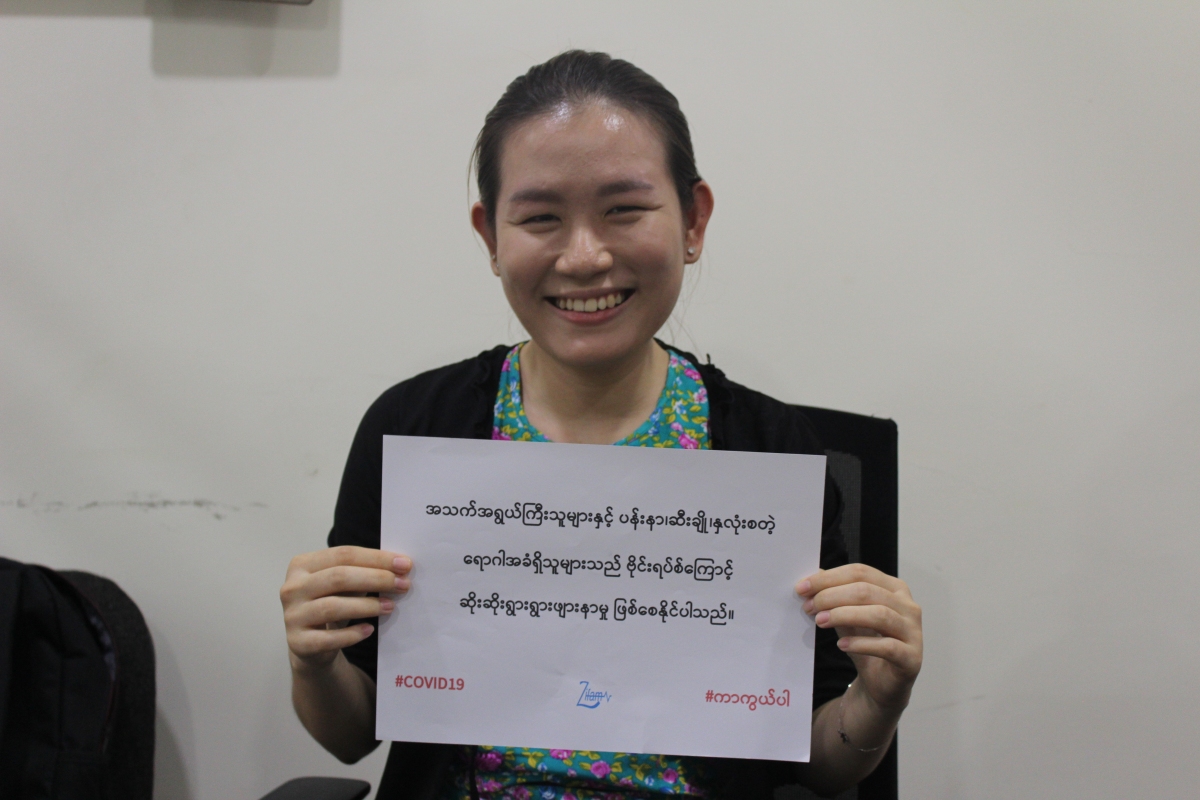 အသက်အရွယ်ကြီးသူများနှင့် ပန်းနာ၊ဆီးချို၊နှလုံးစတဲ့
ရောဂါအခံရှိသူများသည် ဗိုင်းရပ်စ်ကြောင့်
ဆိုးဆိုးရွားရွားဖျားနာမှု ဖြစ်စေနိုင်ပါသည်။
#COVID19
#ကာကွယ်ပါ